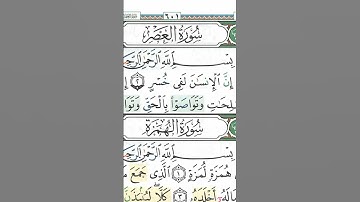 ٦٠١
سُورَةُ العَصْرِ
بِسْمِ ٱللَّهِ ٱلرَّحْمَٰنِ ٱلرَّحِ
إِنَّ ٱلْإِنسَٰنَ لَفِى خُسْرٍ ٢
لِحَٰتِ وَتَوَاصَوْا۟ بِٱلْحَقِّ وَتَوَا
سُورَةُ الهُمَزَةِ
بِسْمِ ٱللَّهِ ٱلرَّحْمَٰنِ ٱلرَّحِ
هُمَزَةٍ لُّمَزَةٍ ١ ٱلَّذِى جَمَعَ
مَالَهُۥٓ أَخْلَدَهُۥ ٣ كَلَّا ۖ لَيُنۢبَذَنَّ